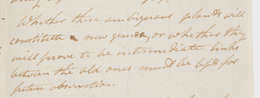 Whether these ambiguous plants will
constitute a new genus, or whether they
will prove to be intermediate links
between the old ones must be left for
future observation.